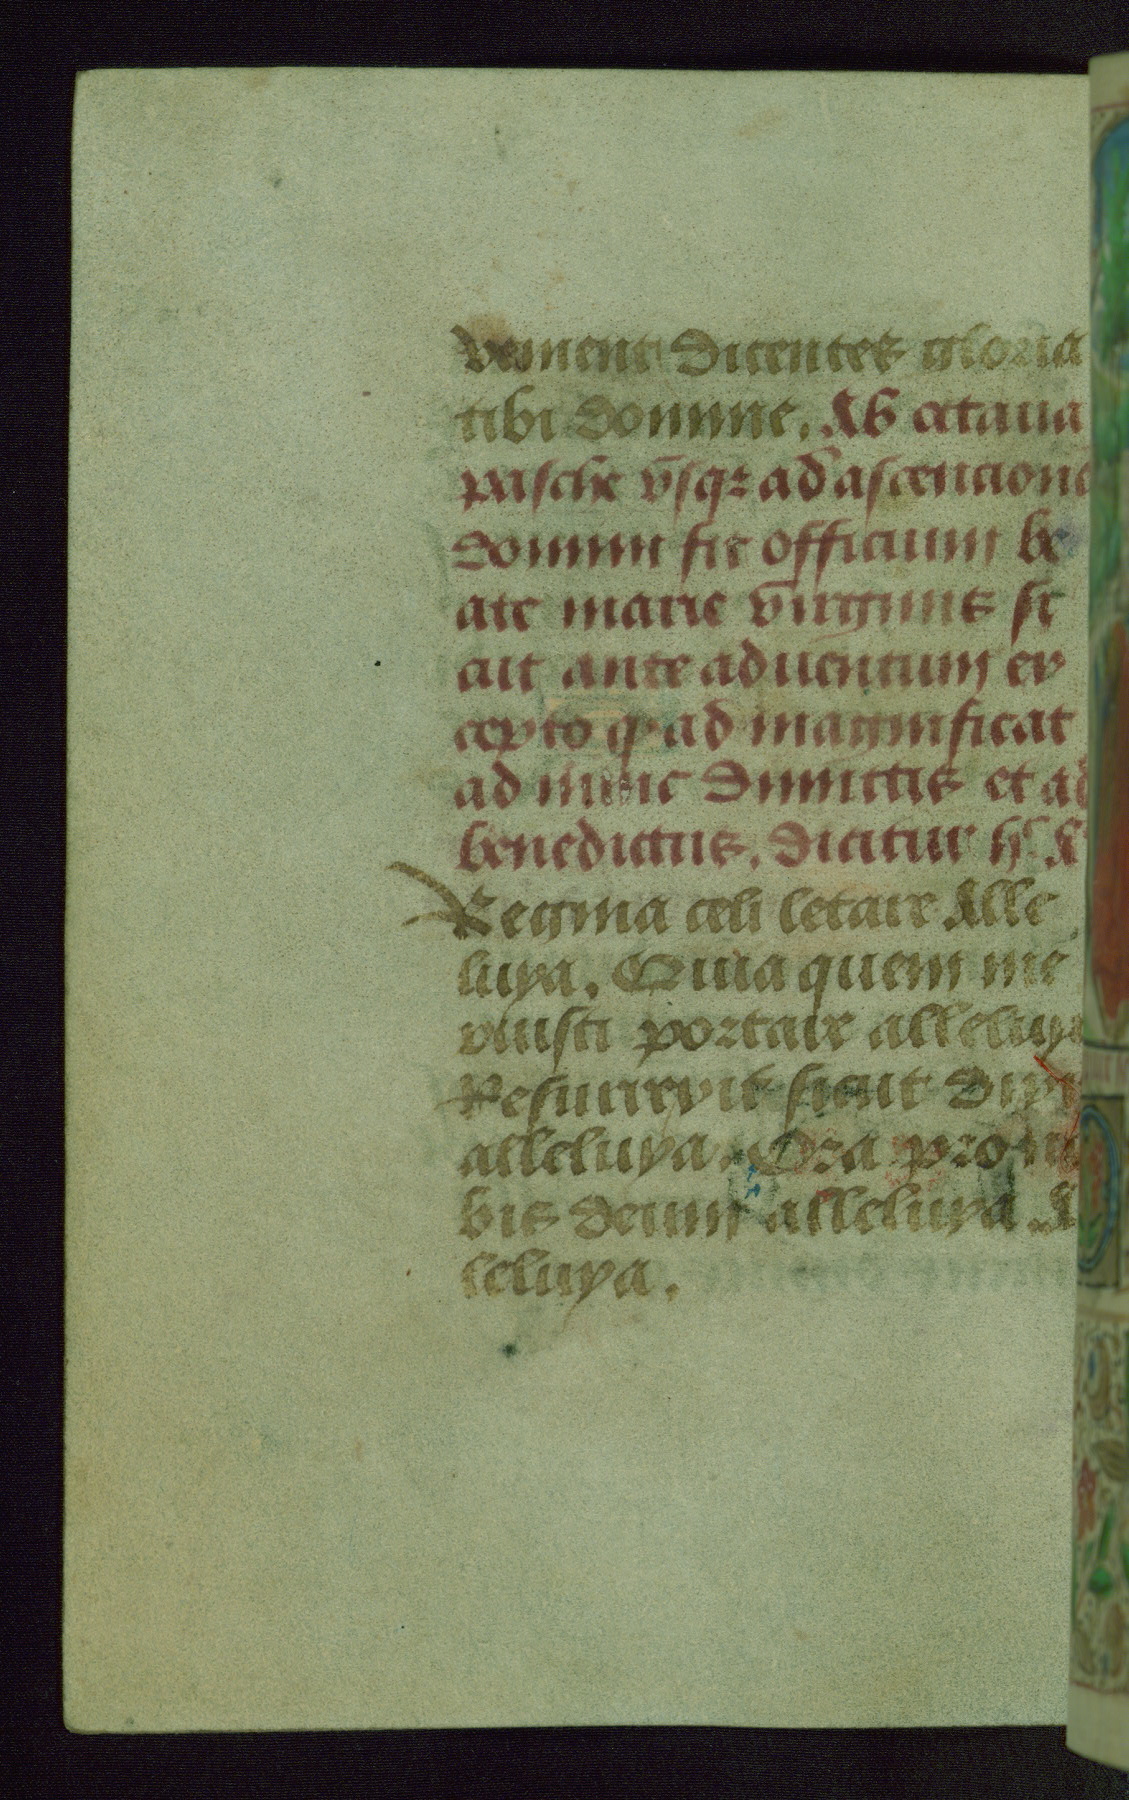 venient dicentes gloria
tibi domine. Ab octaua
pasche vsqz ad ascencione
domini fit officium be
ate marie virginis si
cut ante aduentum ex
cepto q ad magnificat
ad nunc dimittis et ad
benedictus. dicitur h
Regina celi letare Alle
luya. Quia quem me
ruisti portare alleluya
Resurrexit sicut dixit
alleluya. Ora pro no
bis deum alleluya. A
leluya.